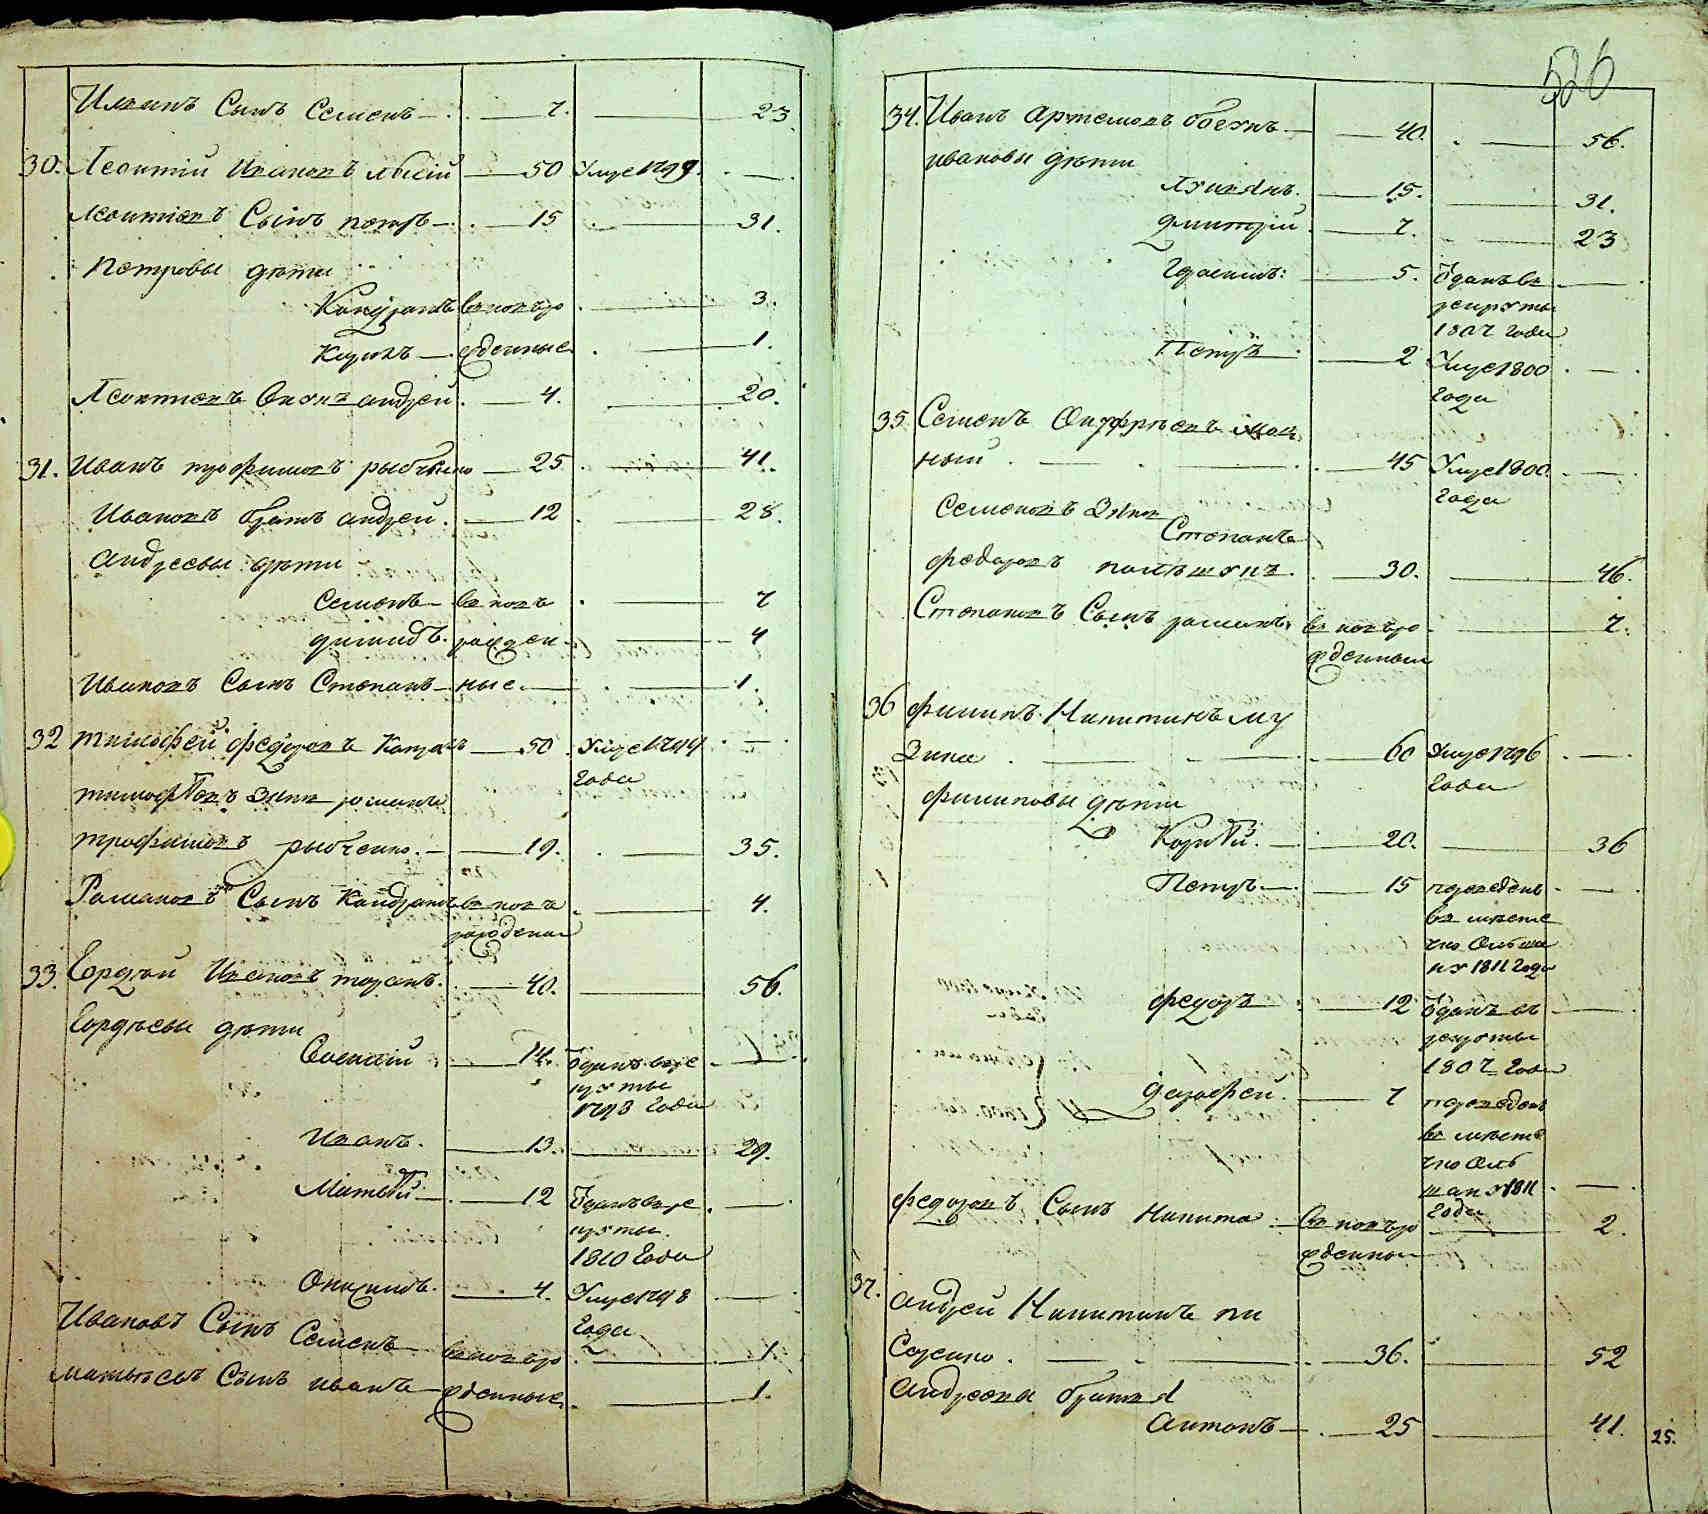 Иванъ Сынъ Семенъ — 7. — 23.
30. Леонтий Ивановъ лысий — 50 Умре 1799. —
Леонтиевъ Сынъ петръ — 15 — 31.
Петровы дети
Кондратъ вновь ро — 3.
Карпъ — жденные — 1.
Леонтиевъ Внукъ андрей — 4. — 20.
31. Иванъ трофимовъ рыбченко — 25 — 41.
Ивановъ братъ андрей — 12 — 28.
андреевы дети
Семенъ — вновь — 7
димидъ рожден — 4
Ивановъ Сынъ Степанъ — ные — 1.
32 тимофей федоровъ — 50 Умре 1794 —
года
тимофеевъ Зять романъ
трофимовъ рыбченко — 19. — 35.
Романовъ Сынъ Кондратъ вновь — 4.
рожденой
33. Гордѣй Ивановъ таранъ — 40. — 56.
Гордѣевы дети
Евсевий — 14. Отданъ в ре —
круты
1798 Года
Иванъ — 13. — 29.
Матвѣй — 12 Отданъ в ре —
круты
1810 Года
Онисимъ — 4. Умре 1798 —
Года
Ивановъ Сынъ Семенъ вновь ро — 1
матвѣевъ Сынъ иванъ — жденные — 1.
526
34. Иванъ Артемовъ — 40. — 56.
ивановы дети
Лукянъ — 15. — 31.
дмитрий — 7. — 23
Герасимъ: — 5. Отданъ в —
рекруты
1807 Года
Петръ — 2 Умре 1800 —
Года
35. Семенъ Онуфриевъ
ный — 45 Умре 1800 —
Года
Семеновъ Зять
Степанъ
федоровъ — 30. — 46.
Степановъ Сынъ романъ вновь ро — 7.
жденный
36 филипъ Никитинъ Му
Зика — 60 Умре 1796 —
Года
филиповы дети
Корнѣй — 20. — 36
Петръ — 15 переведенъ —
в мѣсте
чко Ольша
ну 1811 Года
федоръ — 12 Отданъ въ —
рекруты
1807 Года
дорофей — 7 переведенъ
в мѣсте
чко Оль
шану 1811 —
Года
федоровъ Сынъ Никита — вновь ро — 2.
жденной
37. андрей Никитинъ пи
Саренко — 36. — 52
андреевы братья
антонъ — 25 — 41.
25.